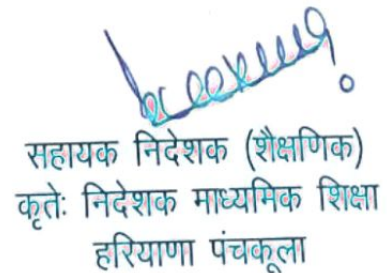 सहायक निदेशक (शैक्षणिक)
कृतेः निदेशक माध्यमिक शिक्षा
हरियाणा पंचकूला